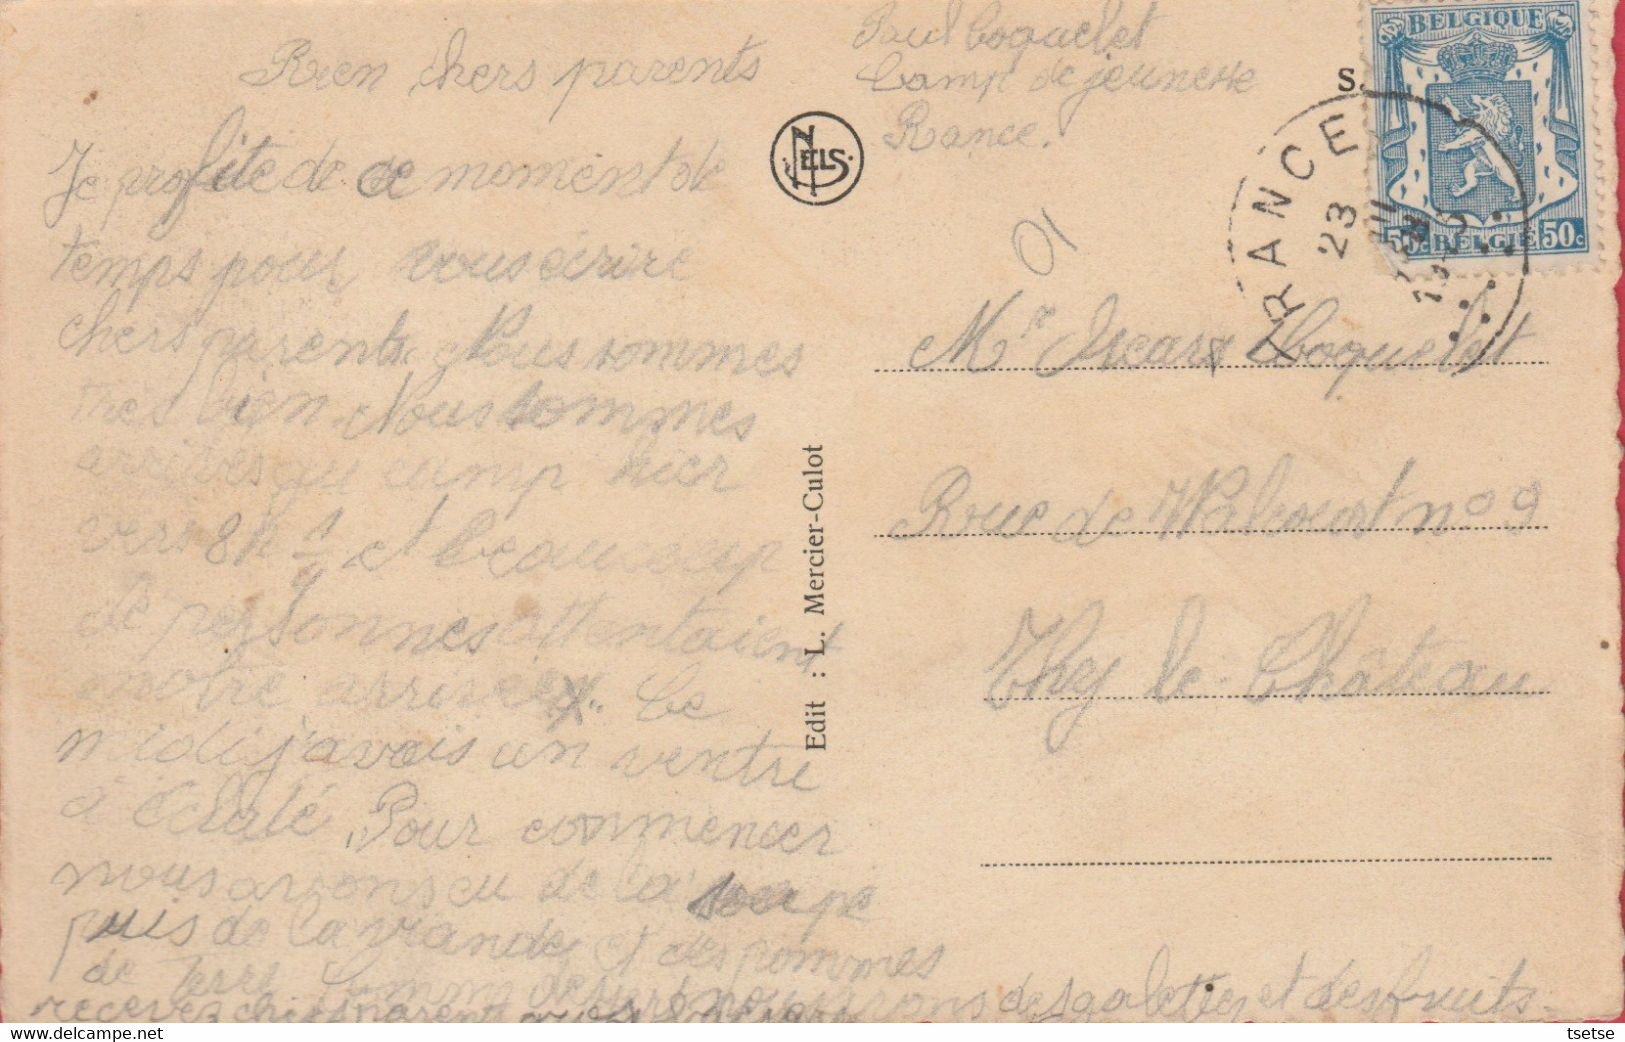 Bien chers parents
Je profite de ce moment de
temps pour vous écrire
chers parents. Nous sommes
très bien. Nous sommes
arrivés au camp hier
vers 8h 1/2 et beaucoup
de personnes attentaient
notre arrivée. Ce
midi j'avais un ventre
à éclaté. Pour commencer
nous avons eu de la soupe
puis de la viande et des pommes
de terre. Comme dessert nous avons des galettes et des fruits.
recevez chers parents
Paul Coquelet
Camp de jeunesse
Rance.
NELS
01
S.
BELGIQUE
50c BELGIE 50c
RANCE
23
Edit : L. Mercier-Culot
Mr Coquelet
Rue de Walcourt no 9
Thy-le-Château
tsetse